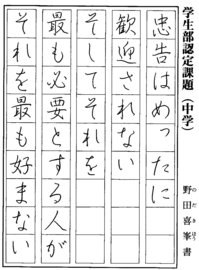 学生部認定課題(中学)
野田喜峯書
のだきほう
忠告はめったに
歓迎されない
そしてそれを
最も必要とする人が
それを最も好まない